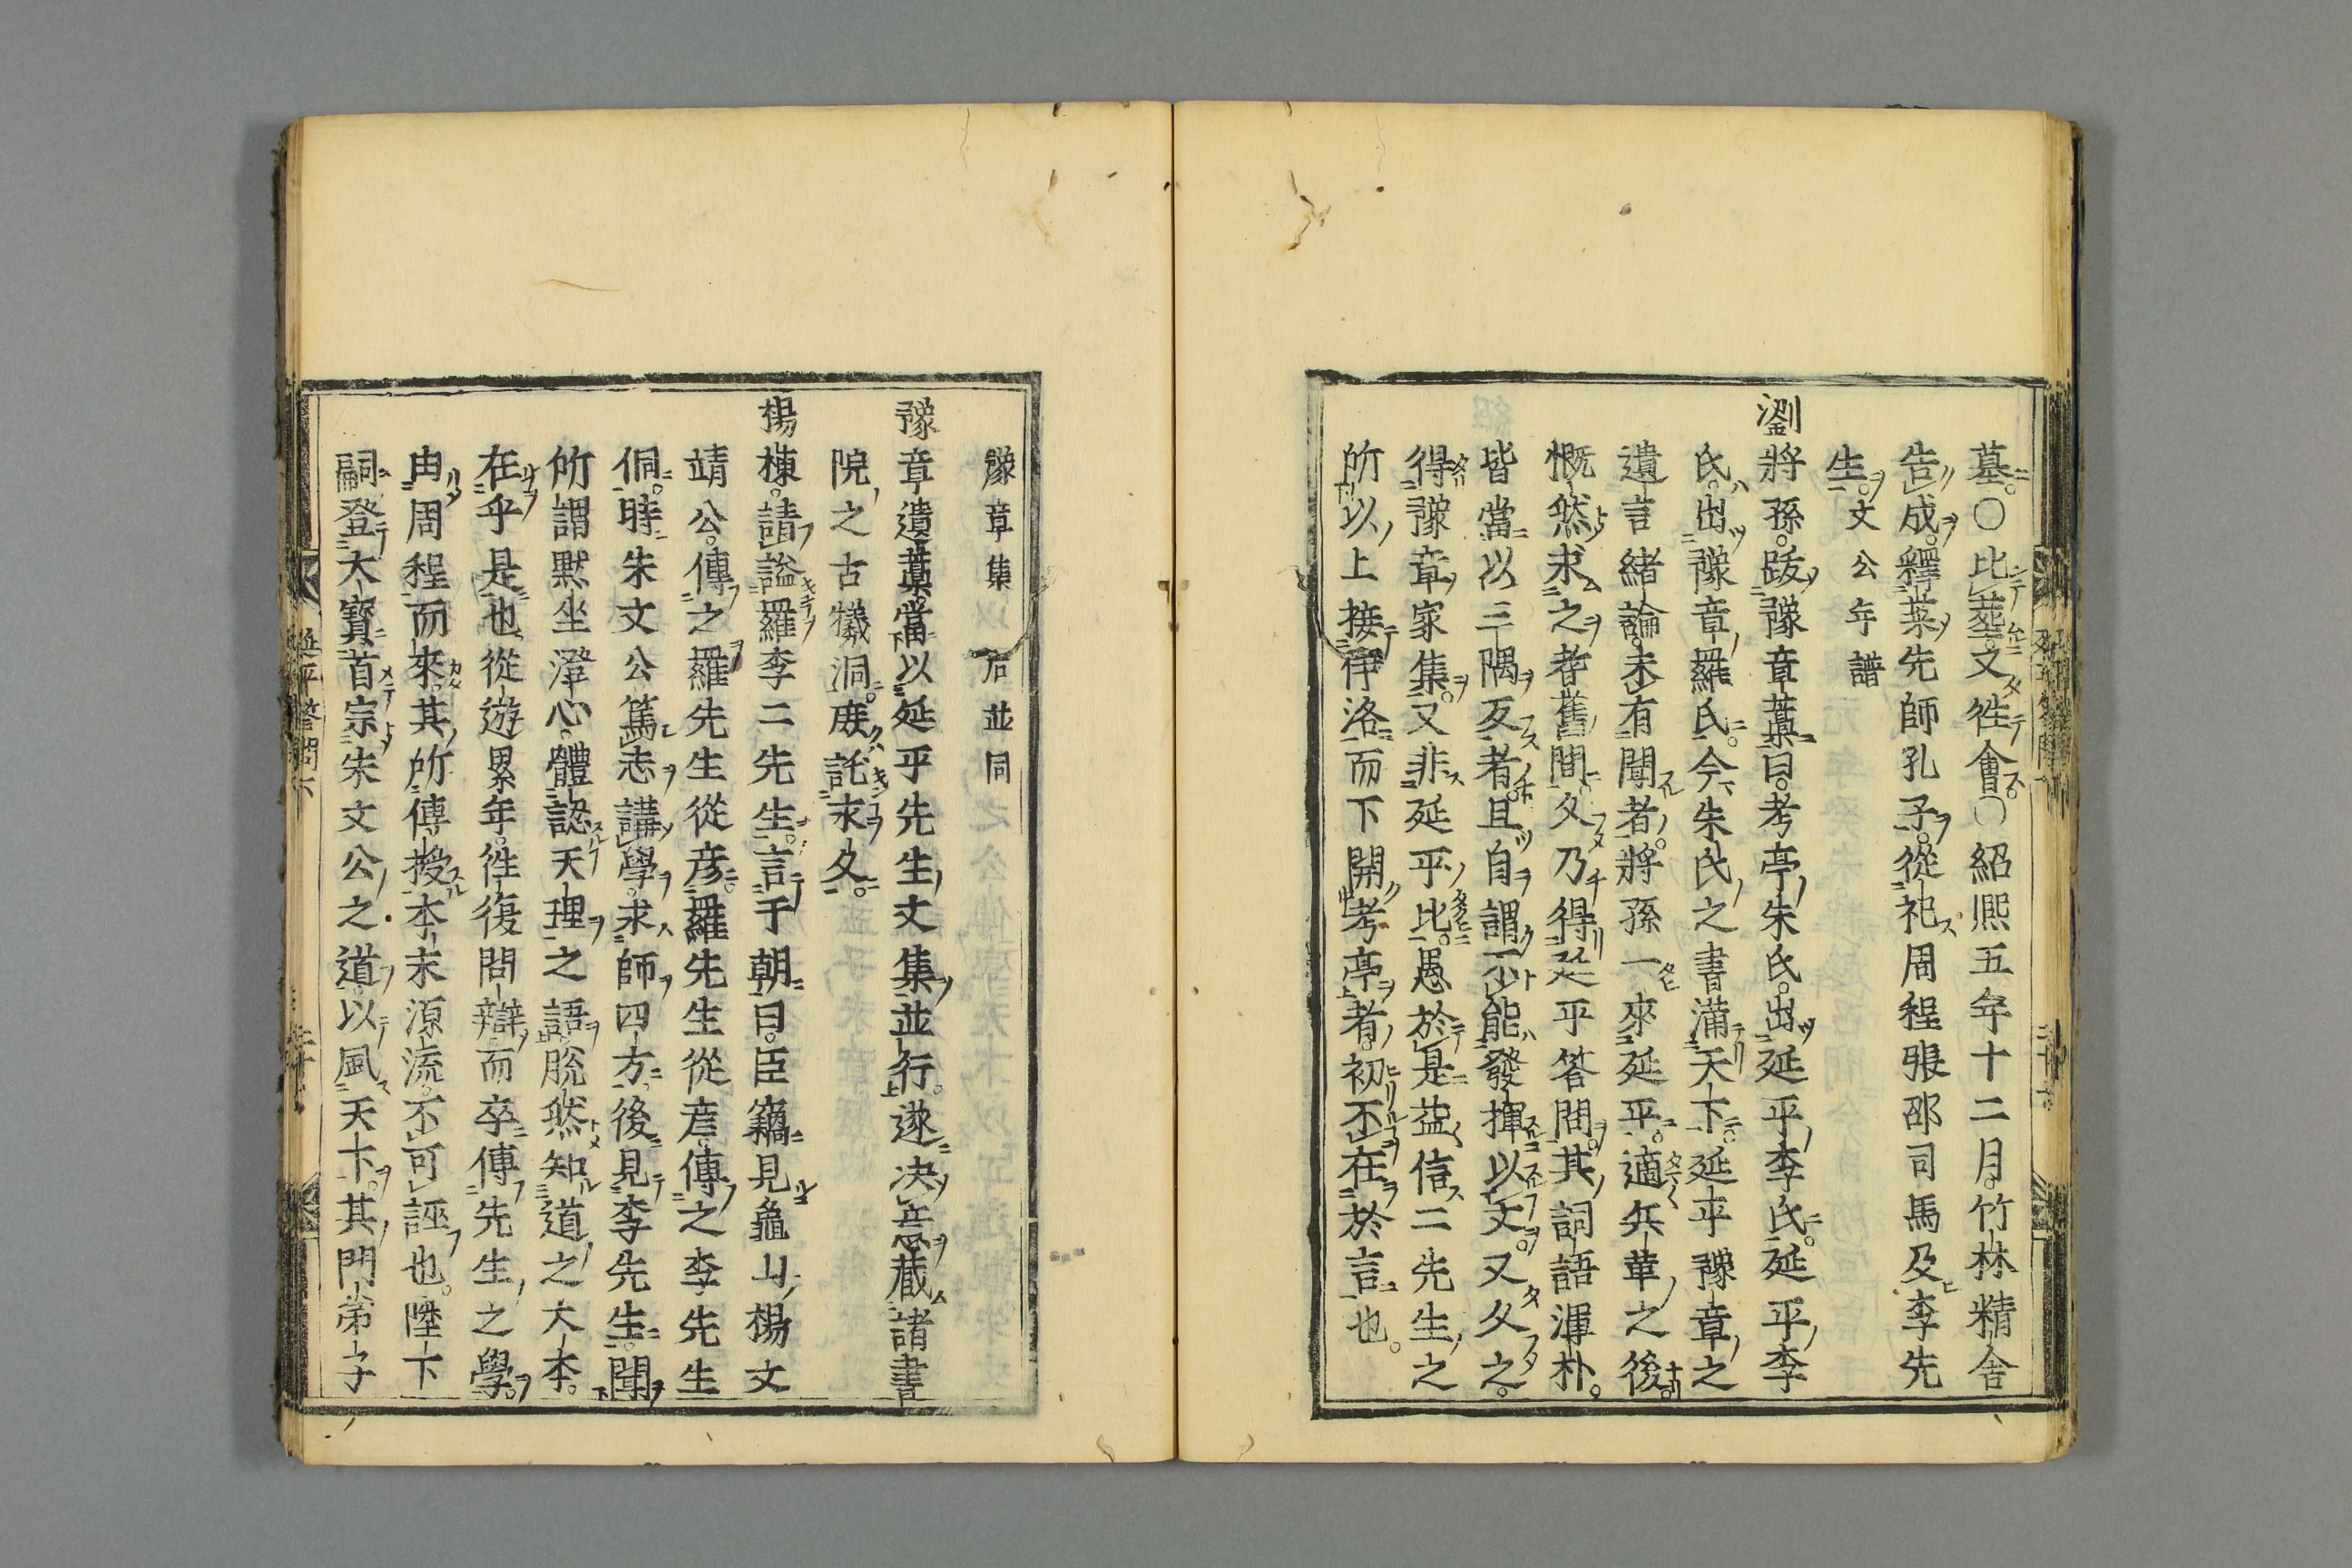 墓○比葬又徃會○紹熙五年十二月竹林精舍
告成釋菜先師孔子從祀周程張邵司馬及李先
生文公年譜
劉將孫跋豫章藁曰考亭朱氏出延平李氏延平李
氏出豫章羅氏今朱氏之書滿天下延平豫章之
遺言緒論未有聞者將孫一來延平適兵革之後
慨然求之耆舊間久乃得延平答問其詞語渾朴
皆當以三隅反者且自謂不能發揮以文又久之
得豫章家集又非延平比愚於是益信二先生之
所以上接伊洛而下開考亭者初不在於言也
豫章集 右並同
豫章遺藁當以延平先生文集並行遂決意藏諸書
院之古犧洞庶託永久
楊棟請謚羅李二先生言于朝曰臣竊見龜山楊文
靖公傳之羅先生從彦羅先生從彦傳之李先生
侗時朱文公篤志講學求師四方後見李先生聞
所謂默坐澄心體認天理之語脫然知道之大本
在乎是也從遊累年徃復問辯而卒傳先生之學
由周程而來其所傳授本末源流不可誣也陛下
嗣登大寳首宗朱文公之道以風天下其門弟子
延平答問